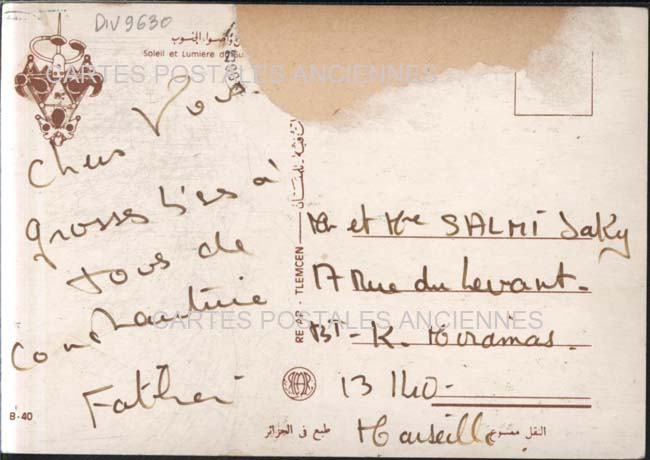 DIV 9630
Soleil et Lumière du
CARTES POSTALES ANCIENNES
Chers Vous
grosses bises à
tous de
Constantine
Fathei
B-40
RE.AR - TLEMCEN
Mr et Mme SALMI Jaky
17 Rue du Levant.
BT - K. Miramas.
13 140 -
Marseille
CARTES POSTALES ANCIENNES
طبع في الجزائر
النقل ممنوع